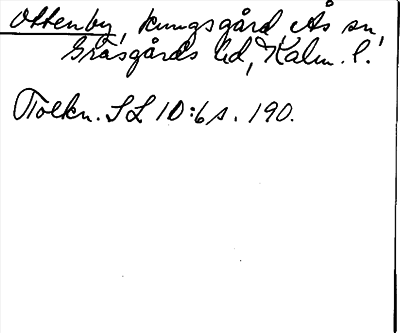 Ottenby, kungsgård Ås sn,
Gräsgårds hd, Kalm. l.
Tolkn. SL 10:6 s. 190.